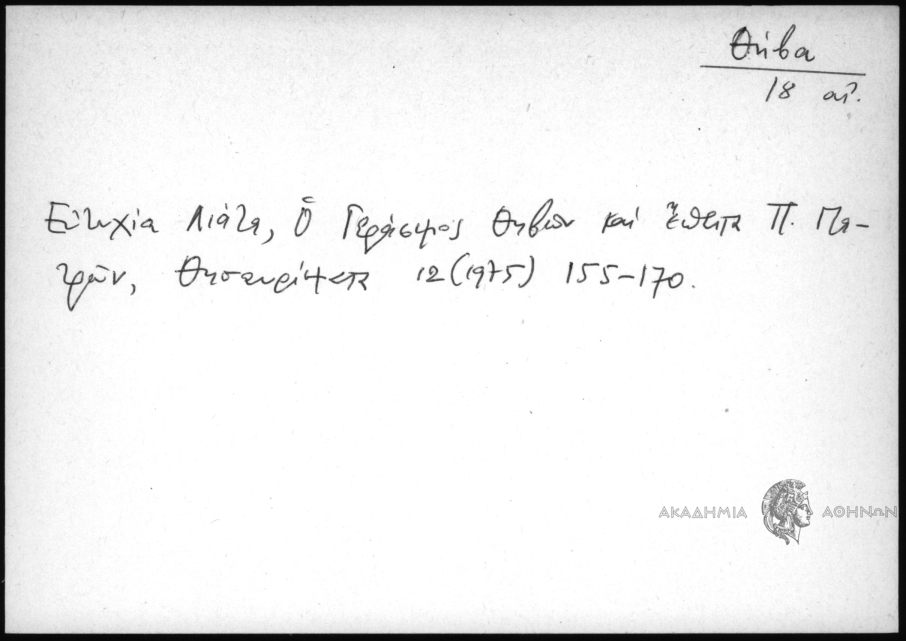 Θήβα
18 αἰ.
Εὐτυχία Λιάτα, Ὁ Γεράσιμος Θηβῶν καὶ ἔπειτα Π. Πα-
τρῶν, Θησαυρίσματα 12 (1975) 155-170.
ΑΚΑΔΗΜΙΑ ΑΘΗΝΩΝ